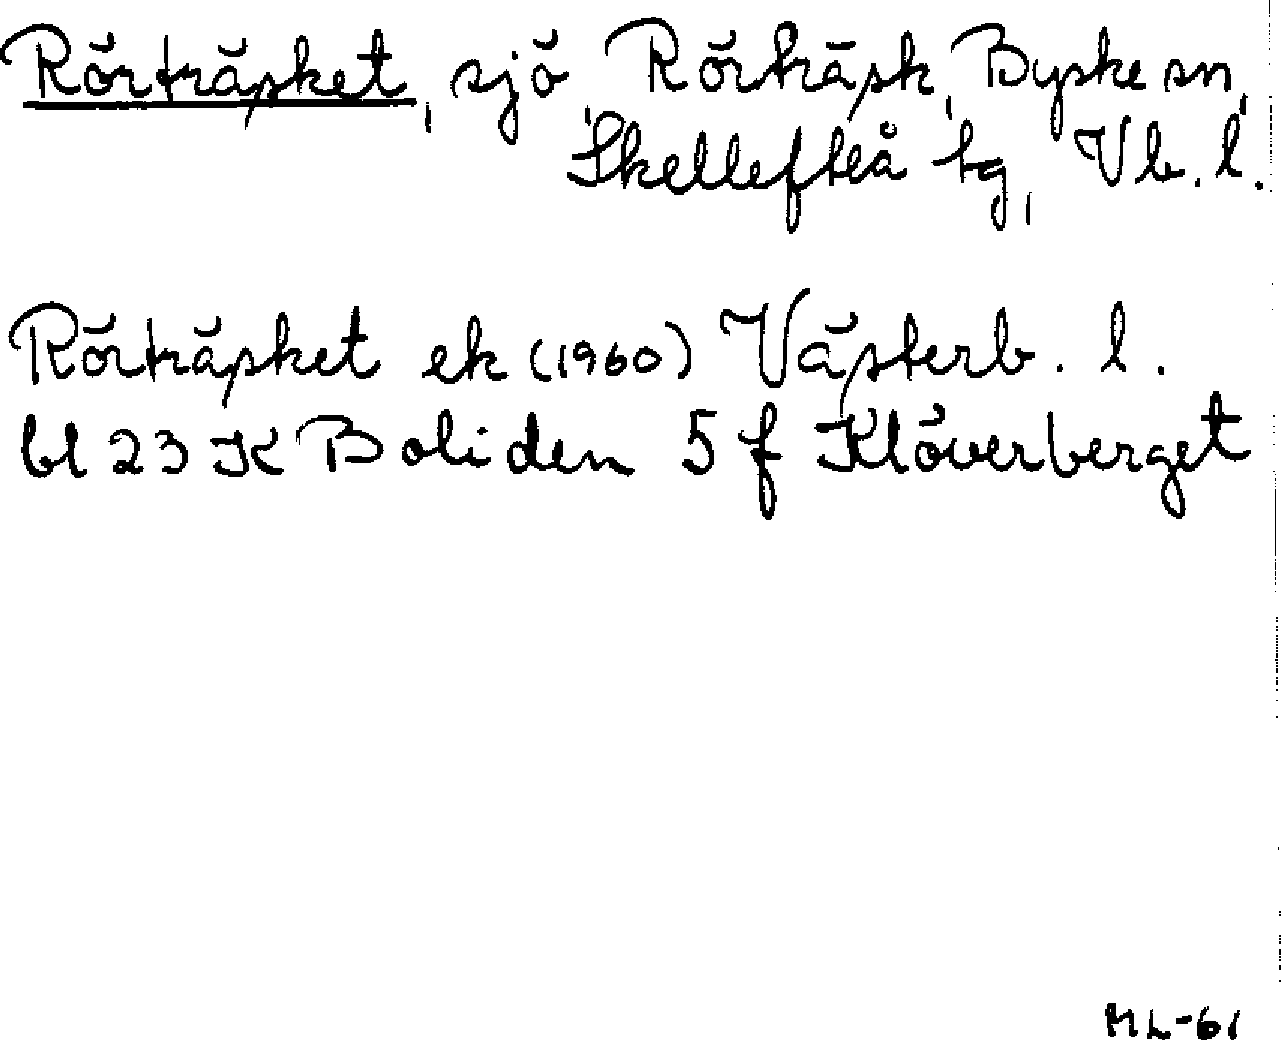 Rörträsket, sjö, Rörträsk, Byske sn,
Skellefteå tg, Vb. l.
Rörträsket ek (1960) Västerb. l.
bl 23 K Boliden 5 f Klöverberget
ML-61